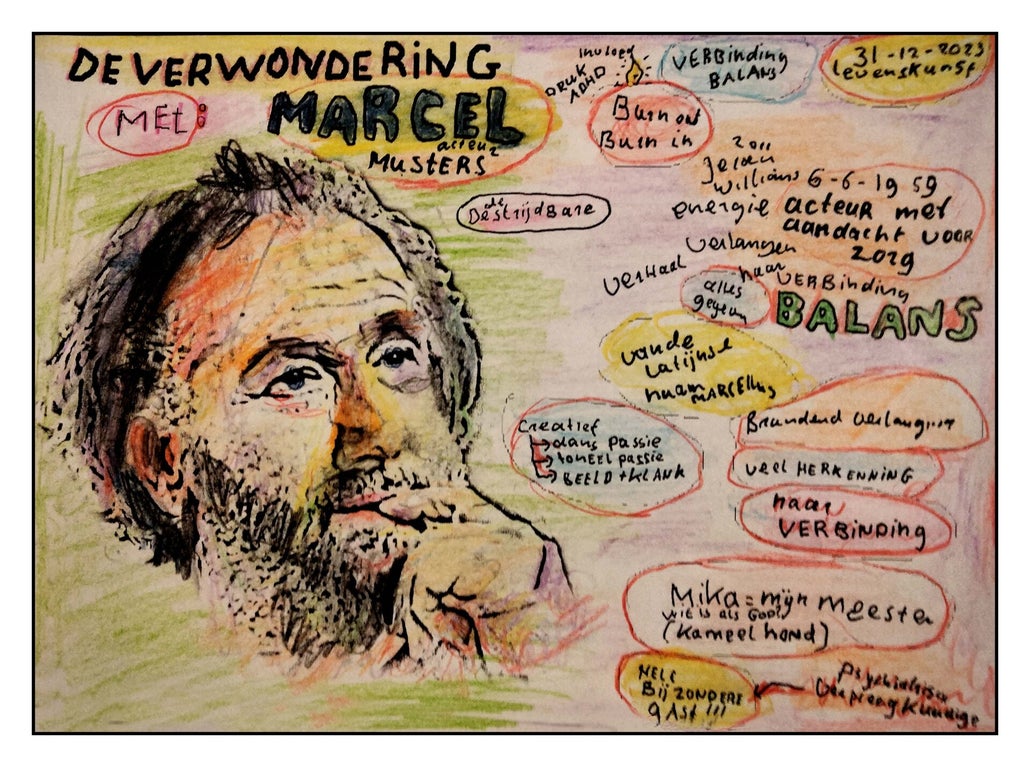 DE VERWONDERING
MET:
MARCEL
acteur
MUSTERS
de
Bestrijdbare
invloed
DRUK
ADHD
VERBinding
BALANS
31-12-2023
levenskunst
Burn out
Burn in
2011
Jeroen
Willems
6-6-1959
energie
acteur met
aandacht voor
zorg
verlangen
verhaal
naar
VERBinding
BALANS
alles
gegeven
van de
Latijnse
naam MARCELLUS
Creatief
dans passie
toneel passie
BEELD + KLANK
Brandend verlangen
veel HERKENNING
naar
VERBINDING
Mika = mijn meester
wie is als God?
(Kameel hond)
HELE
BIJZONDERE
gAST !!!